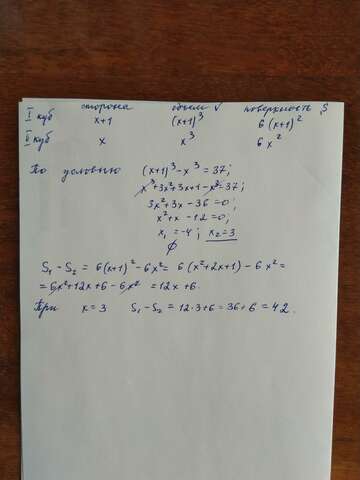 сторона объем V поверхность S
I куб x+1 (x+1)³ 6(x+1)²
II куб x x³ 6x²
По условию (x+1)³-x³=37;
x³+3x²+3x+1-x³=37;
3x²+3x-36=0;
x²+x-12=0;
x₁=-4; x₂=3
∅
S₁-S₂=6(x+1)²-6x²=6(x²+2x+1)-6x²=
=6x²+12x+6-6x²=12x+6.
При x=3 S₁-S₂=12·3+6=36+6=42.